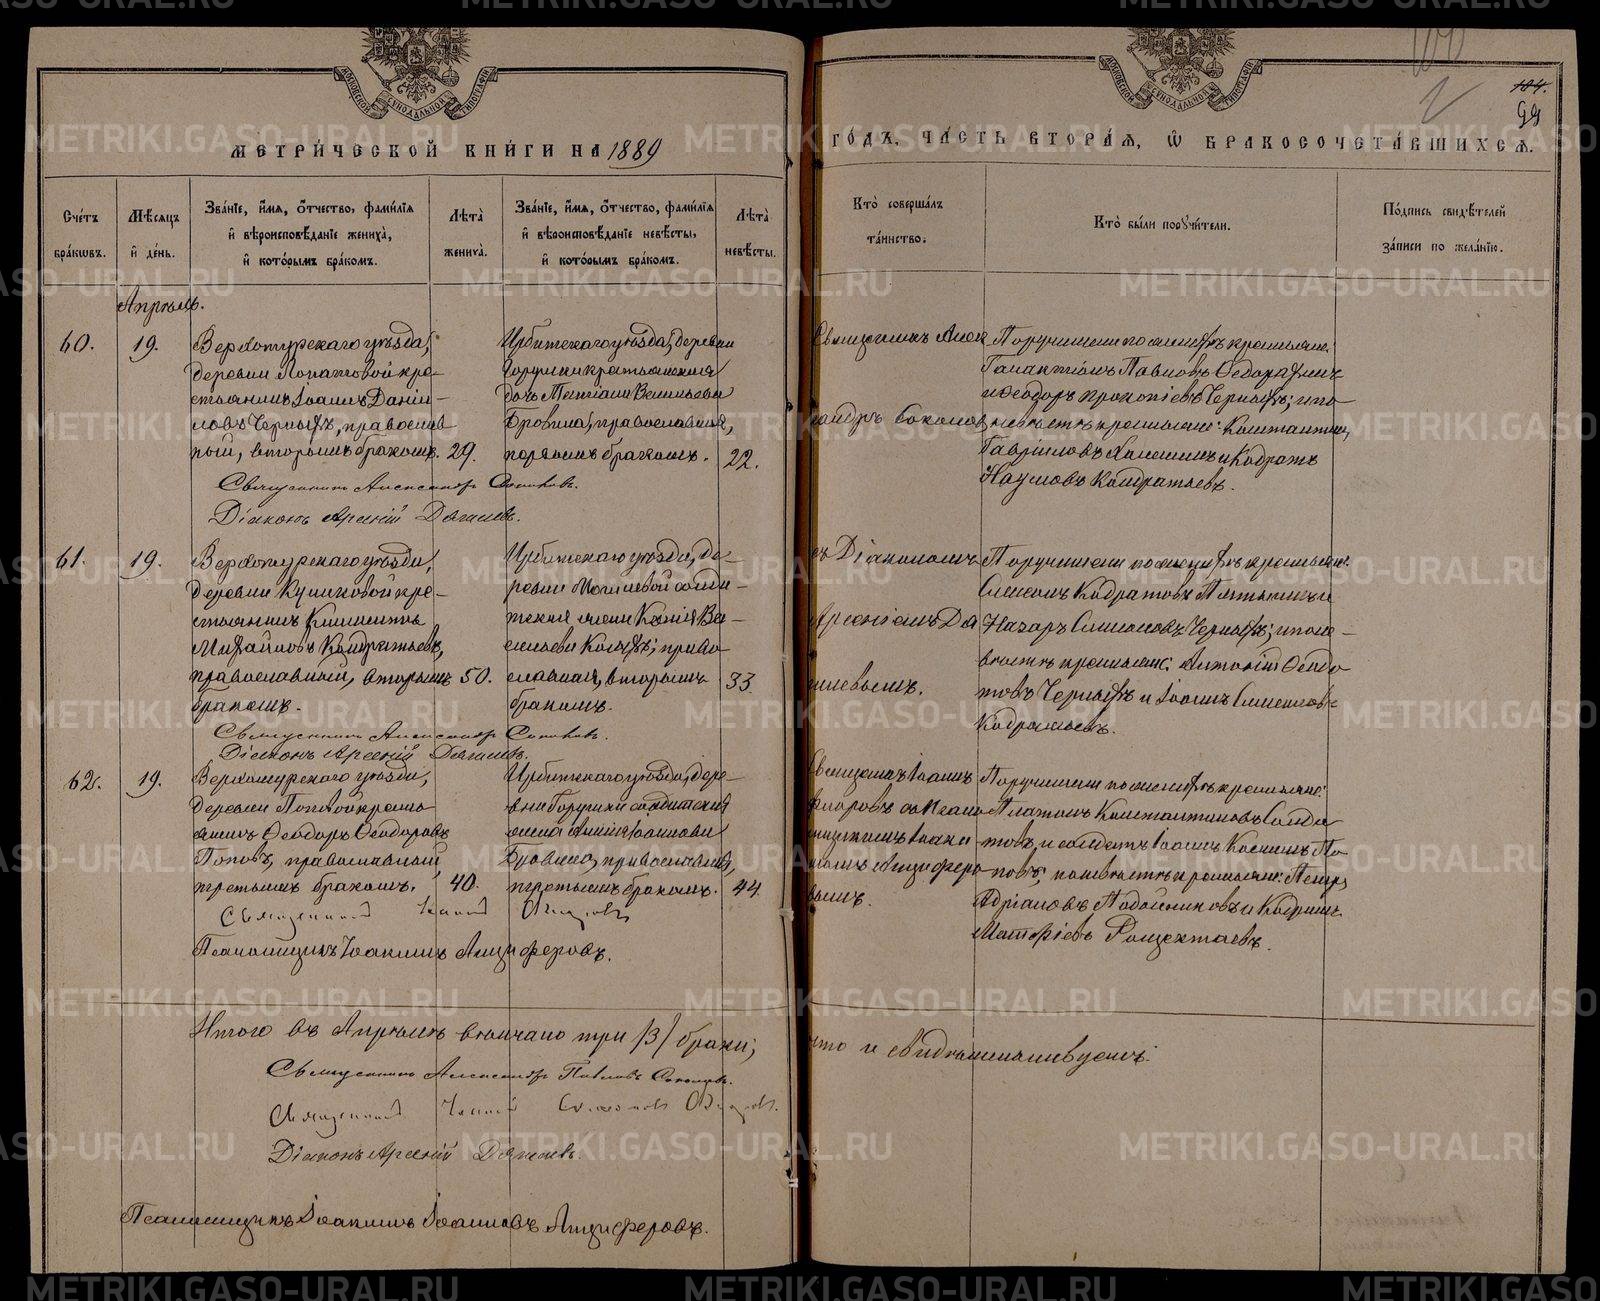 МЕТРИ́ЧЕСКОЙ КНИ́ГИ НА 1889
ГО́ДЪ, ЧА́СТЬ ВТОРА́Я, Ѡ БРАКОСОЧЕТА́ВШИХСЯ.
99
Сче́тъ бра́кѡвъ.
Мѣ́сяцъ и де́нь.
Зва́нїе, и́мя, о́тчество, фами́лїя и вѣроисповѣ́данїе жениха̀, и кото́рымъ бра́комъ.
Лѣта̀ жениха̀.
Зва́нїе, и́мя, о́тчество, фами́лїя и вѣроисповѣ́данїе невѣ́сты, и кото́рымъ бра́комъ.
Лѣта̀ невѣ́сты.
Кто̀ соверша́лъ та́инство.
Кто̀ бы́ли порꙋчи́тели.
По́дпись свидѣ́телей за́писи по жела́нїю.
Апрѣль.
60.
19.
Верхотурскаго уѣзда,
деревни Лопатовой кре-
стьянинъ Іоаннъ Даніи-
ловъ Черныхъ, православ
ный, вторымъ бракомъ. 29.
Ирбитскаго уѣзда, деревни
крестьянская
дочь Татіана Васильева
Бровина, православная,
первымъ бракомъ. 22.
Священникъ Александръ Соколовъ
Поручители по женихѣ крестьяне:
Галактіонъ Павловъ
и Ѳеодоръ Прокопіевъ Черныхъ; и по
невѣстѣ крестьяне: Константинъ
Гавріиловъ и Кодратъ
Наумовъ Кондратьевъ.
Священникъ Александръ Соколовъ.
Діаконъ Арсеній Дягилевъ.
61.
19.
Верхотурскаго уѣзда,
деревни Куликовой кре-
стьянинъ Климентъ
Михайловъ Кондратьевъ,
православный, вторымъ 50.
бракомъ.
Ирбитскаго уѣзда, де-
ревни солдат-
ская жена Ксенія Ва-
сильева право
славная, вторымъ 33.
бракомъ.
съ Діакономъ
Арсеніемъ Дя
гилевымъ.
Поручители по женихѣ крестьяне:
Симеонъ Кодратовъ
Назаръ Симеоновъ Черныхъ; и по не-
вѣстѣ крестьяне: Антоній Ѳедо
товъ Черныхъ и Іоаннъ Симеоновъ
Кодратьевъ.
Священникъ Александръ Соколовъ.
Діаконъ Арсеній Дягилевъ.
62.
19.
Верхотурскаго уѣзда,
деревни Поповой кресть
янинъ Ѳеодоръ Ѳеодоровъ
Поповъ, православный,
третьимъ бракомъ. 40.
Ирбитскаго уѣзда, дере-
вни солдатская
жена Анна Іоаннова
Бровина, православная,
третьимъ бракомъ. 44.
Священникъ Іоаннъ
съ Псало
мщикомъ Іоаки
момъ Анциферо
вымъ.
Поручители по женихѣ крестьяне:
Платонъ Константиновъ Солда
товъ, и солдатъ Іоаннъ Косминъ По
повъ; по невѣстѣ крестьяне: Петръ
Адріановъ Подойниковъ и
Матѳіевъ
Псаломщикъ Іоакимъ Анциферовъ.
Итого въ Апрѣлѣ вѣнчано три /3/ брака;
что и свидѣтельствуемъ:
Священникъ Александръ Павловъ Соколовъ.
Священникъ Іоаннъ
Діаконъ Арсеній Дягилевъ.
Псаломщикъ Іоакимъ Іоанновъ Анциферовъ.
METRIKI.GASO-URAL.RU